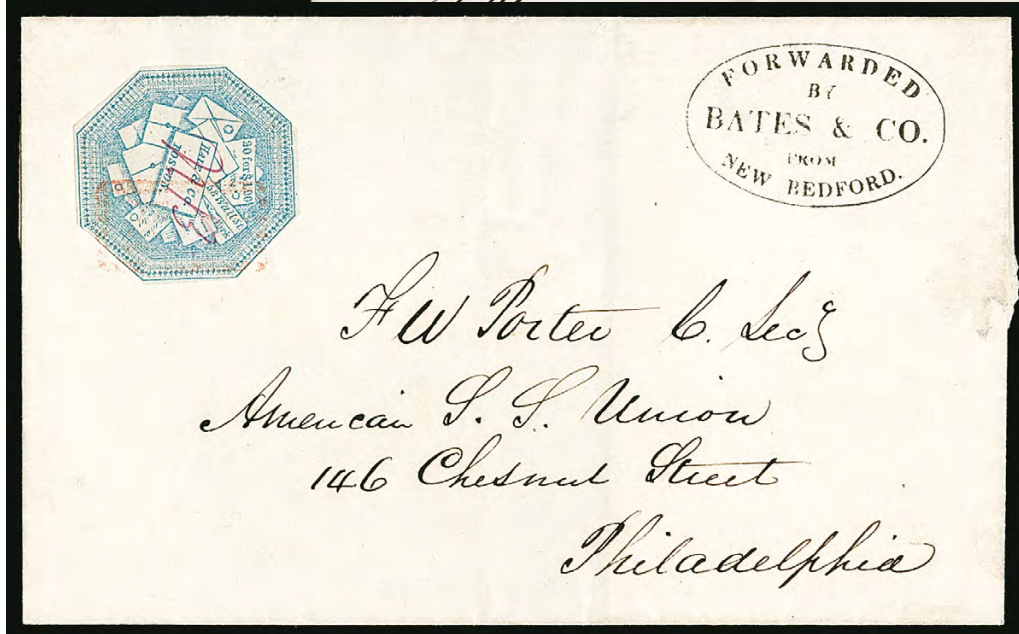 20 for $1.00
Hale & Co.
Boston.
FORWARDED
BY
BATES & CO.
FROM
NEW BEDFORD.
F W Porter C. Secy
American S. S. Union
146 Chesnut Street
Philadelphia